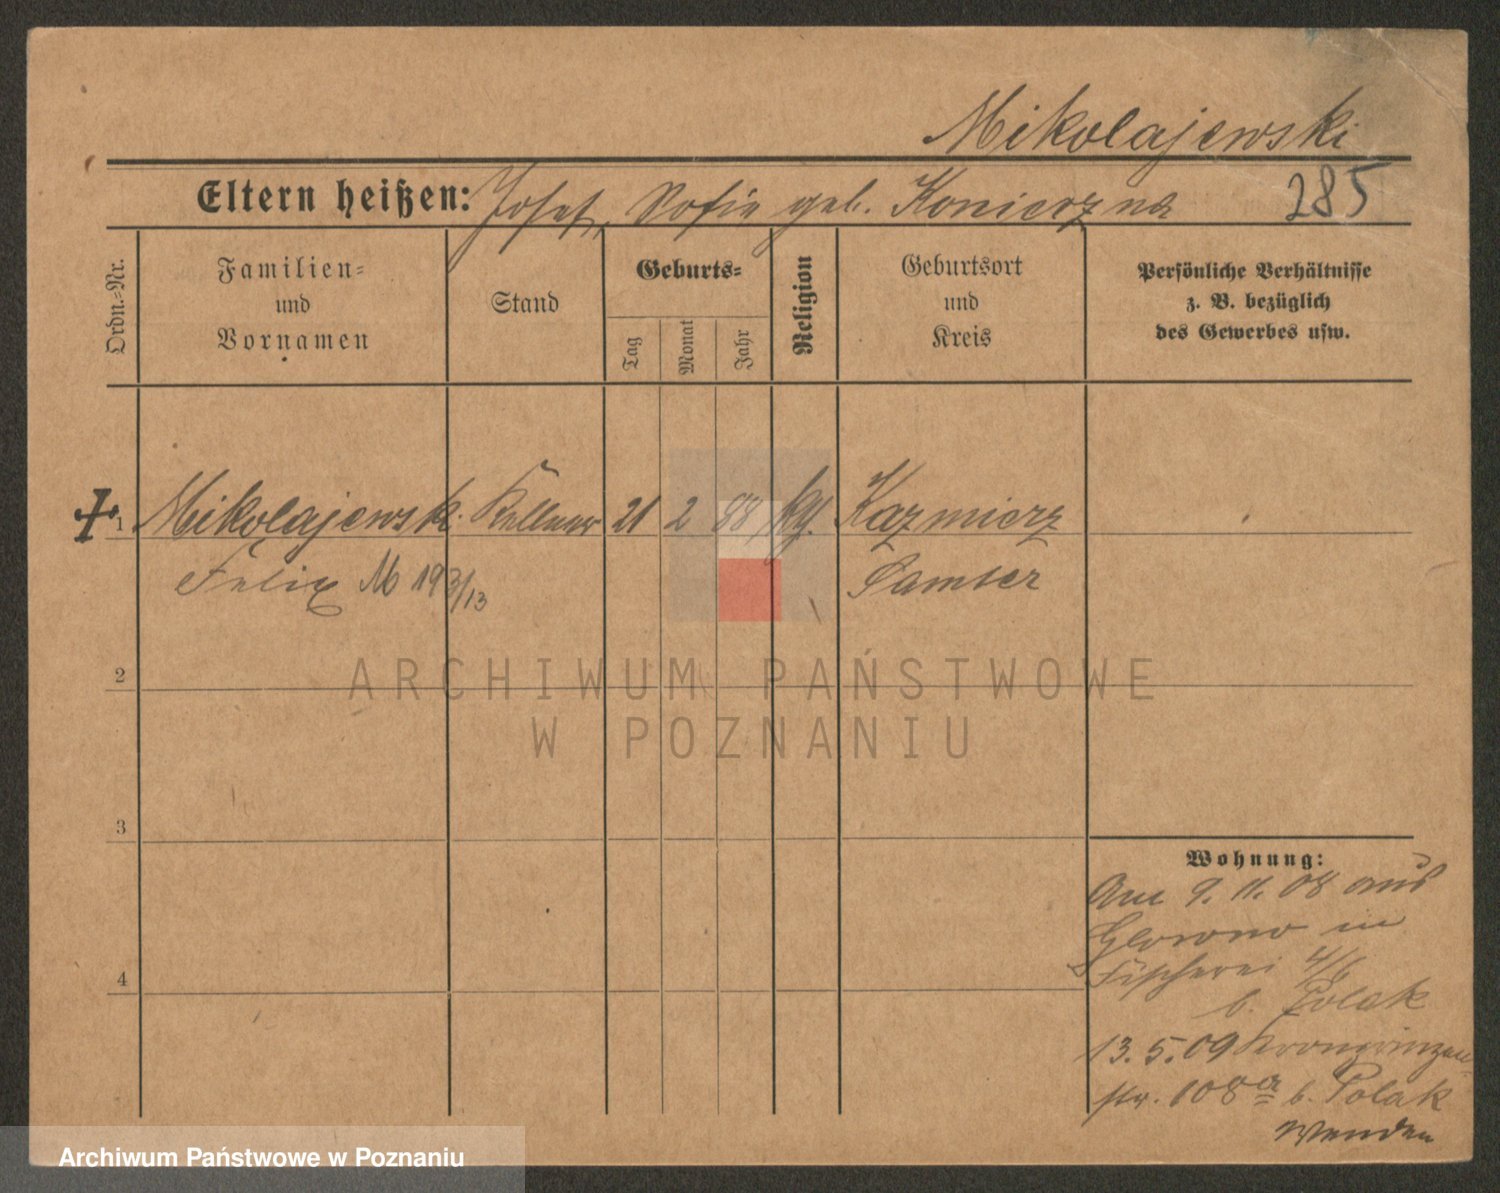 Mikolajewski
Eltern heißen: Josef, Sofie geb. Konierzna 285
Ordn.-Nr.
Familien-
und
Vornamen
Stand
Geburts-
Tag
Monat
Jahr
Religion
Geburtsort
und
Kreis
Persönliche Verhältnisse
z. B. bezüglich
des Gewerbes usw.
1 Mikolajewski Kellner 21 2 88 kth. Kazmierz
Felix M 193/13 Samter
2
3
4
Wohnung:
Am 9. 11. 08 aus
Glowno in
Fischerei 4/6
b. Polak
13. 5. 09 Kronprinzen-
str. 108a b. Polak
Wenden
ARCHIWUM PAŃSTWOWE
W POZNANIU
Archiwum Państwowe w Poznaniu